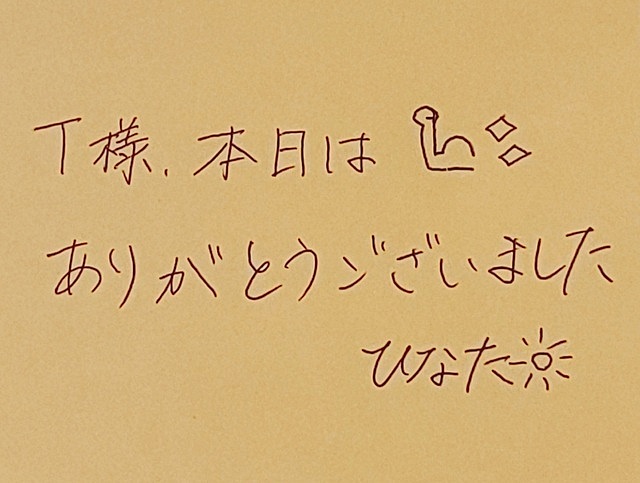 T様、本日は
ありがとうございました
ひなた